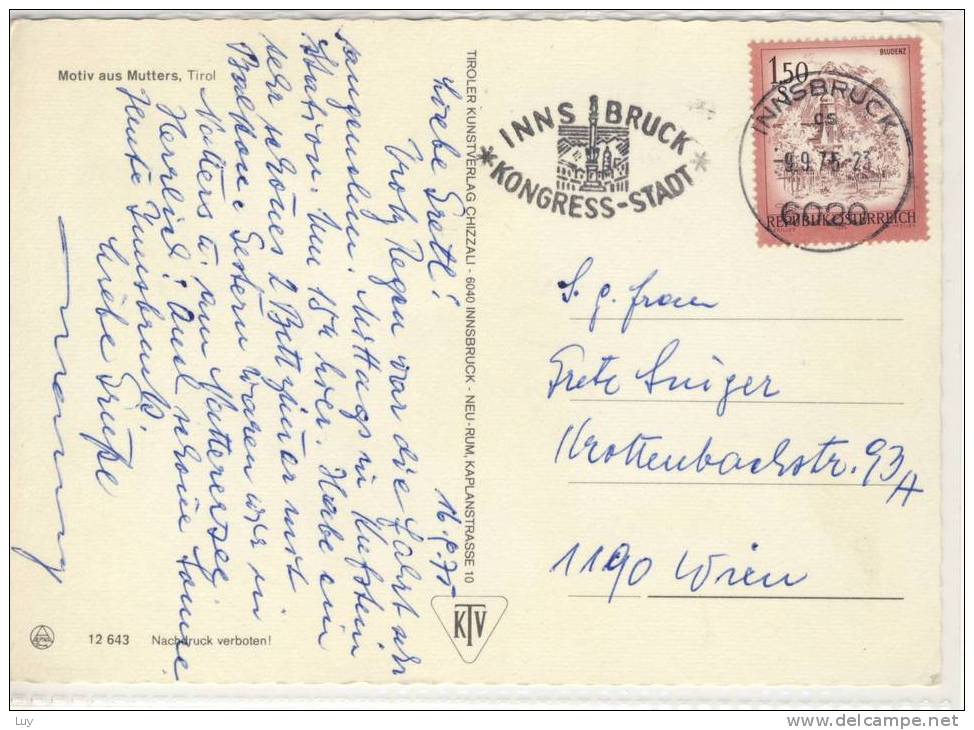 Motiv aus Mutters, Tirol
16.9.75
Liebe Gretl!
Trotz Regen war die Fahrt sehr
angenehm. Mittags in Kufstein
Station. Um 15h hier. Habe ein
sehr schönes 2 Bettzimmer mit
Balkon. Gestern waren wir in
Natters u. am Natterersee.
Herrlich! Auch schöne Sonne.
Heute Innsbruck.
Liebe Grüße
12 643 Nachdruck verboten!
TIROLER KUNSTVERLAG CHIZZALI - 6040 INNSBRUCK - NEU-RUM, KAPLANSTRASSE 10
KTV
INNSBRUCK
*KONGRESS-STADT*
BLUDENZ
1.50
S
REPUBLIK ÖSTERREICH
INNSBRUCK
-9.9.75-23
6020
S. g. Frau
Grete
Krottenbachstr. 93/A
1190 Wien
Luy
www.delcampe.net